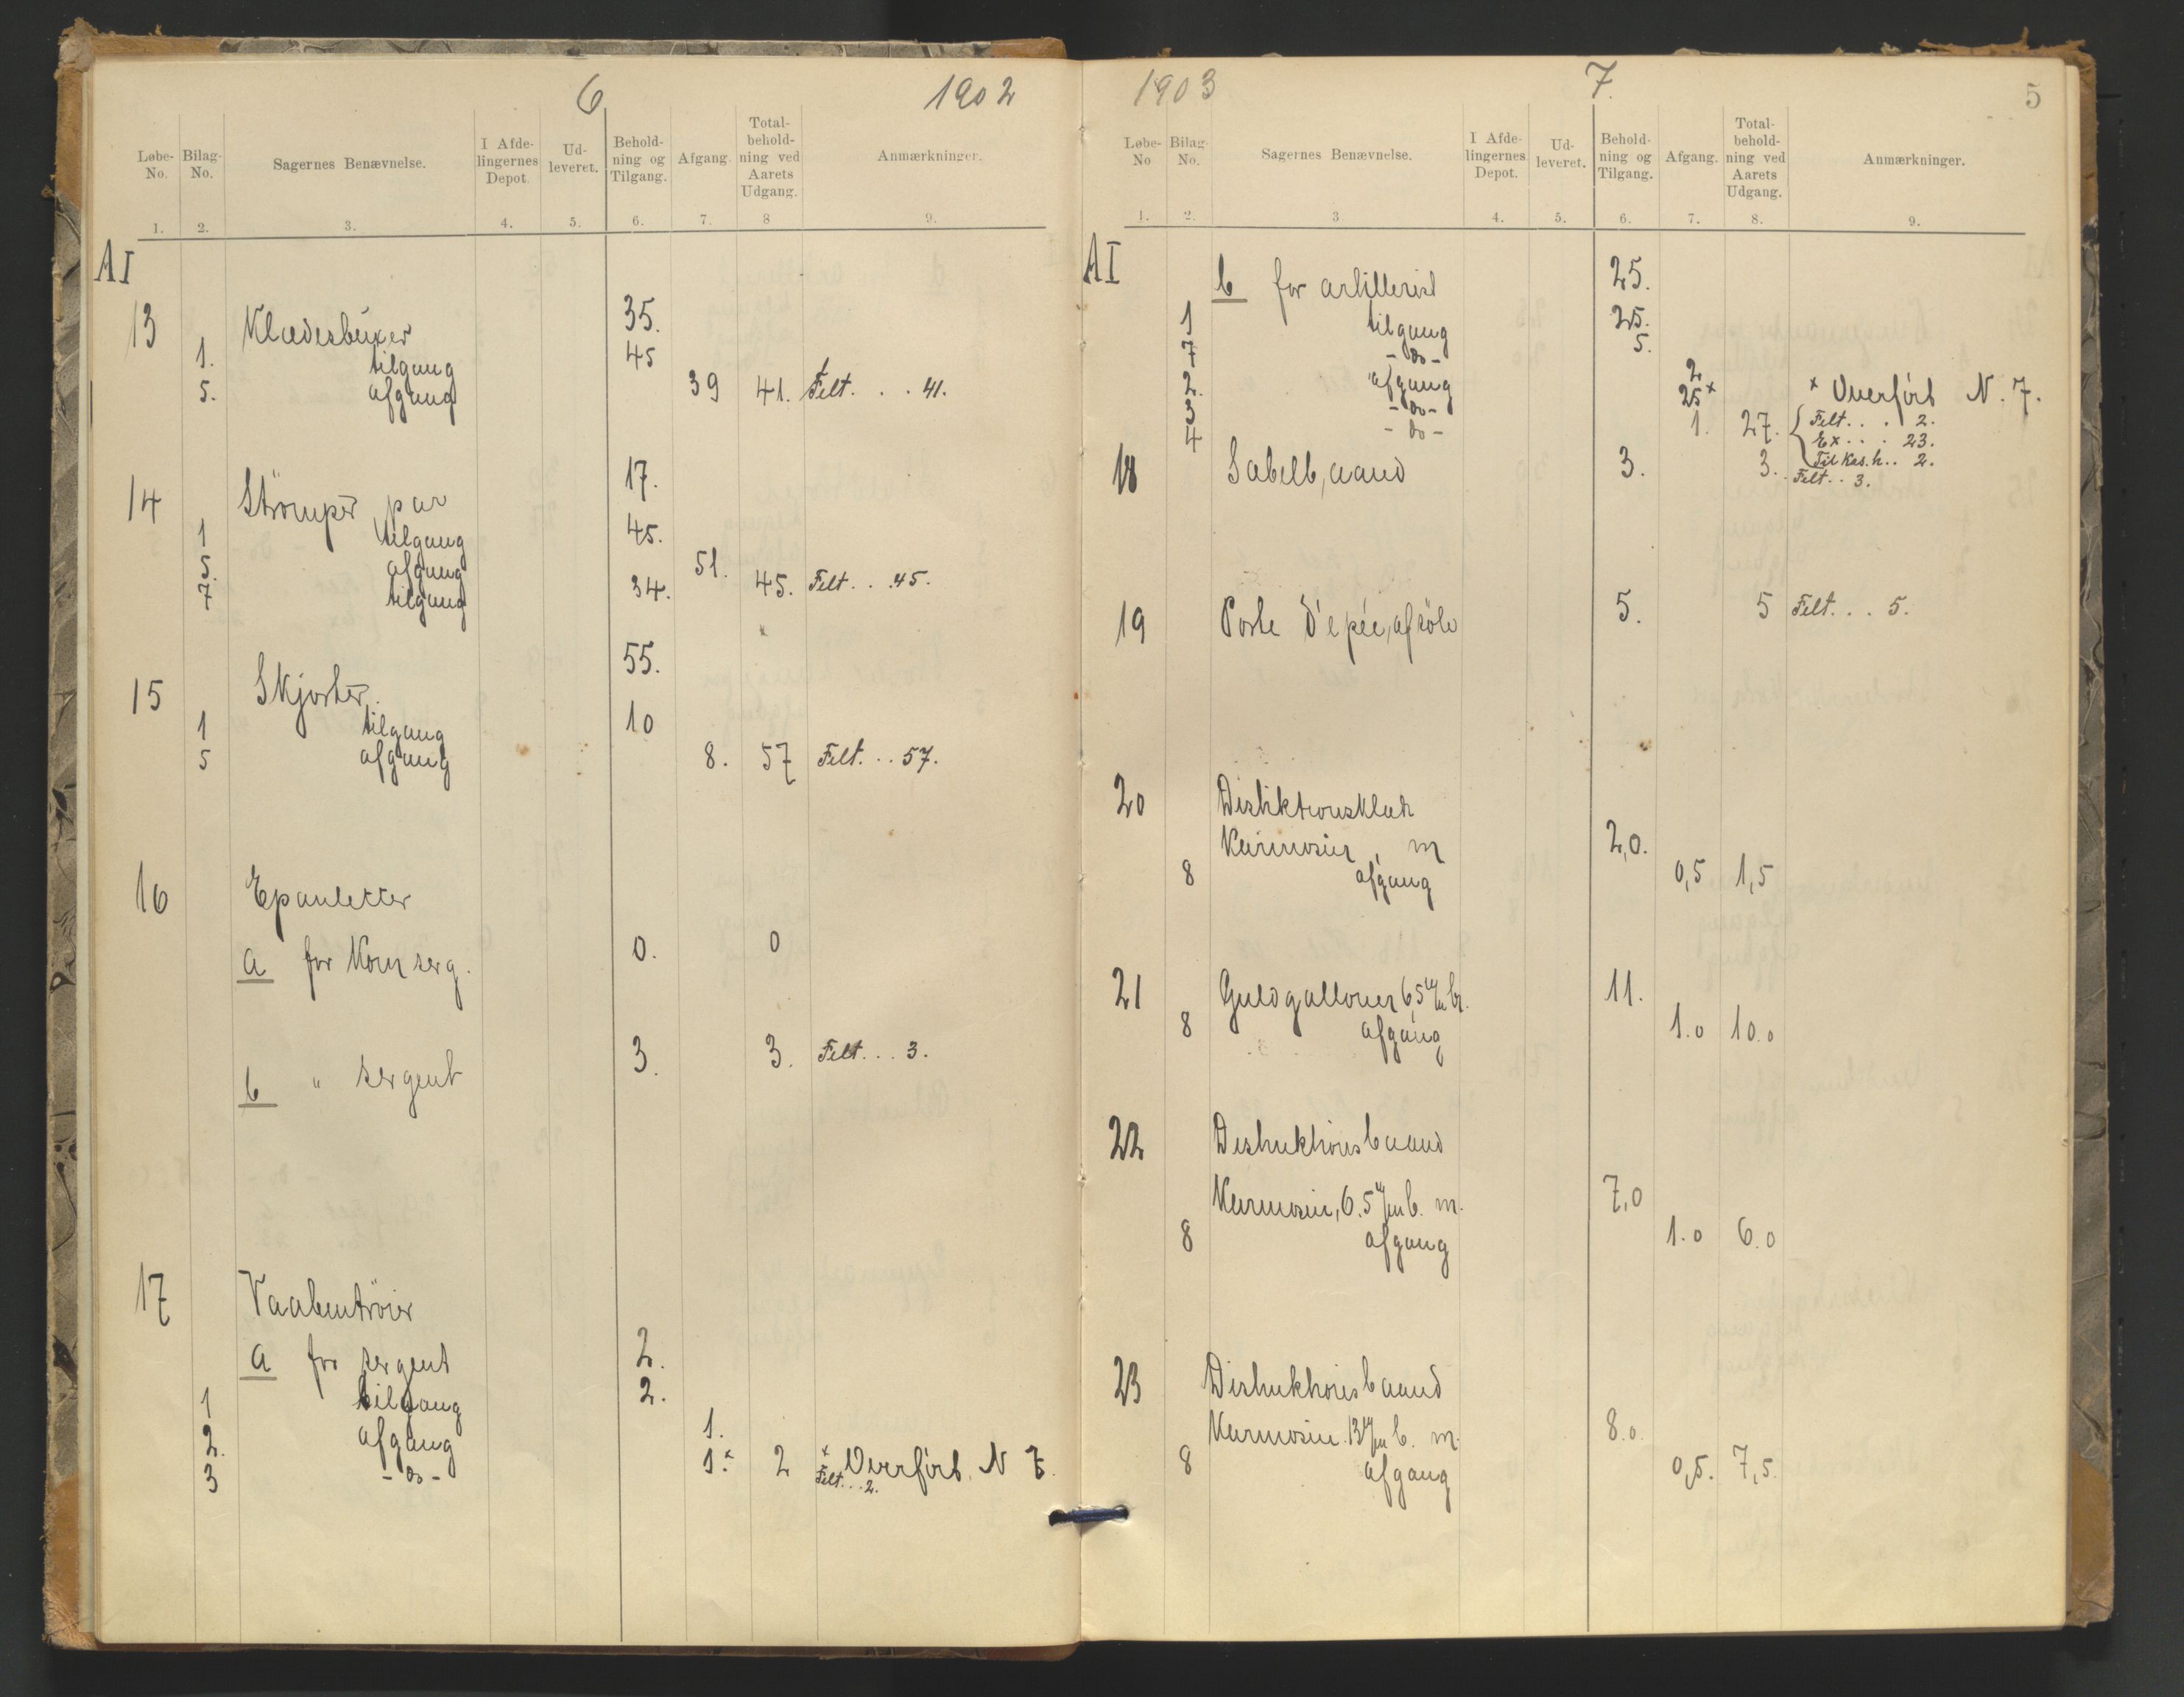 6 1902
Løbe-No. Bilag-No. Sagernes Benævnelse. I Afdelingernes Depot. Udleveret. Beholdning og Tilgang. Afgang. Totalbeholdning ved Aarets Udgang. Anmærkninger.
1. 2. 3. 4. 5. 6. 7. 8 9.
AI
13 Klædesbuxer 35.
1. tilgang 45
5. afgang 39 41. Felt. . . 41.
14 Strömper par 17.
1 tilgang 45.
5. afgang 51.
7 tilgang 34. 45. Felt. . .45.
15 Skjorter. 55.
1 tilgang 10
5 afgang 8. 57 Felt. . . 57.
16 Epauletter
a for Komserg. 0. 0
b " sergent 3. 3. Felt. . . 3.
17 Vaabentröier
a for sergent 2.
1 tilgang 2.
2. afgang 1.
3 - do - 1.x 2 x Overført. N
Felt. . . 2.
1903 7. 5
Løbe-No Bilag No. Sagernes Benævnelse. I Afdelingernes Depot. Udleveret. Beholdning og Tilgang. Afgang. Totalbeholdning ved Aarets Udgang. Anmærkninger.
1. 2. 3 4. 5. 6. 7. 8. 9.
AI
b for artillerist 25.
1 tilgang 25.
7 - do - 5.
2. afgang 2
3 - do - 25x x Overført N. 7.
4 - do - 1. 27. Felt. . . 2.
Ex. . . 23.
Til Kas.h. . 2.
18 Sabelbaand 3. 3. Felt. . 3.
19 Porte d'epée, af sölv 5. 5 Felt. . . 5.
20 Distiktionsklæde
Karmosin, m 2,0.
8 afgang 0,5 1,5
21 Guldgalloner 6,5 m/m br. 11.
8 afgang 1.0 10.0
22 Distinktionsbaand
Karmosin, 6.5 m/m b. m. 7,0
8 afgang 1.0 6.0
23 Distinktionsbaand
Karmosin. 13 m/m b. m. 8.0.
8 afgang 0,5. 7,5.